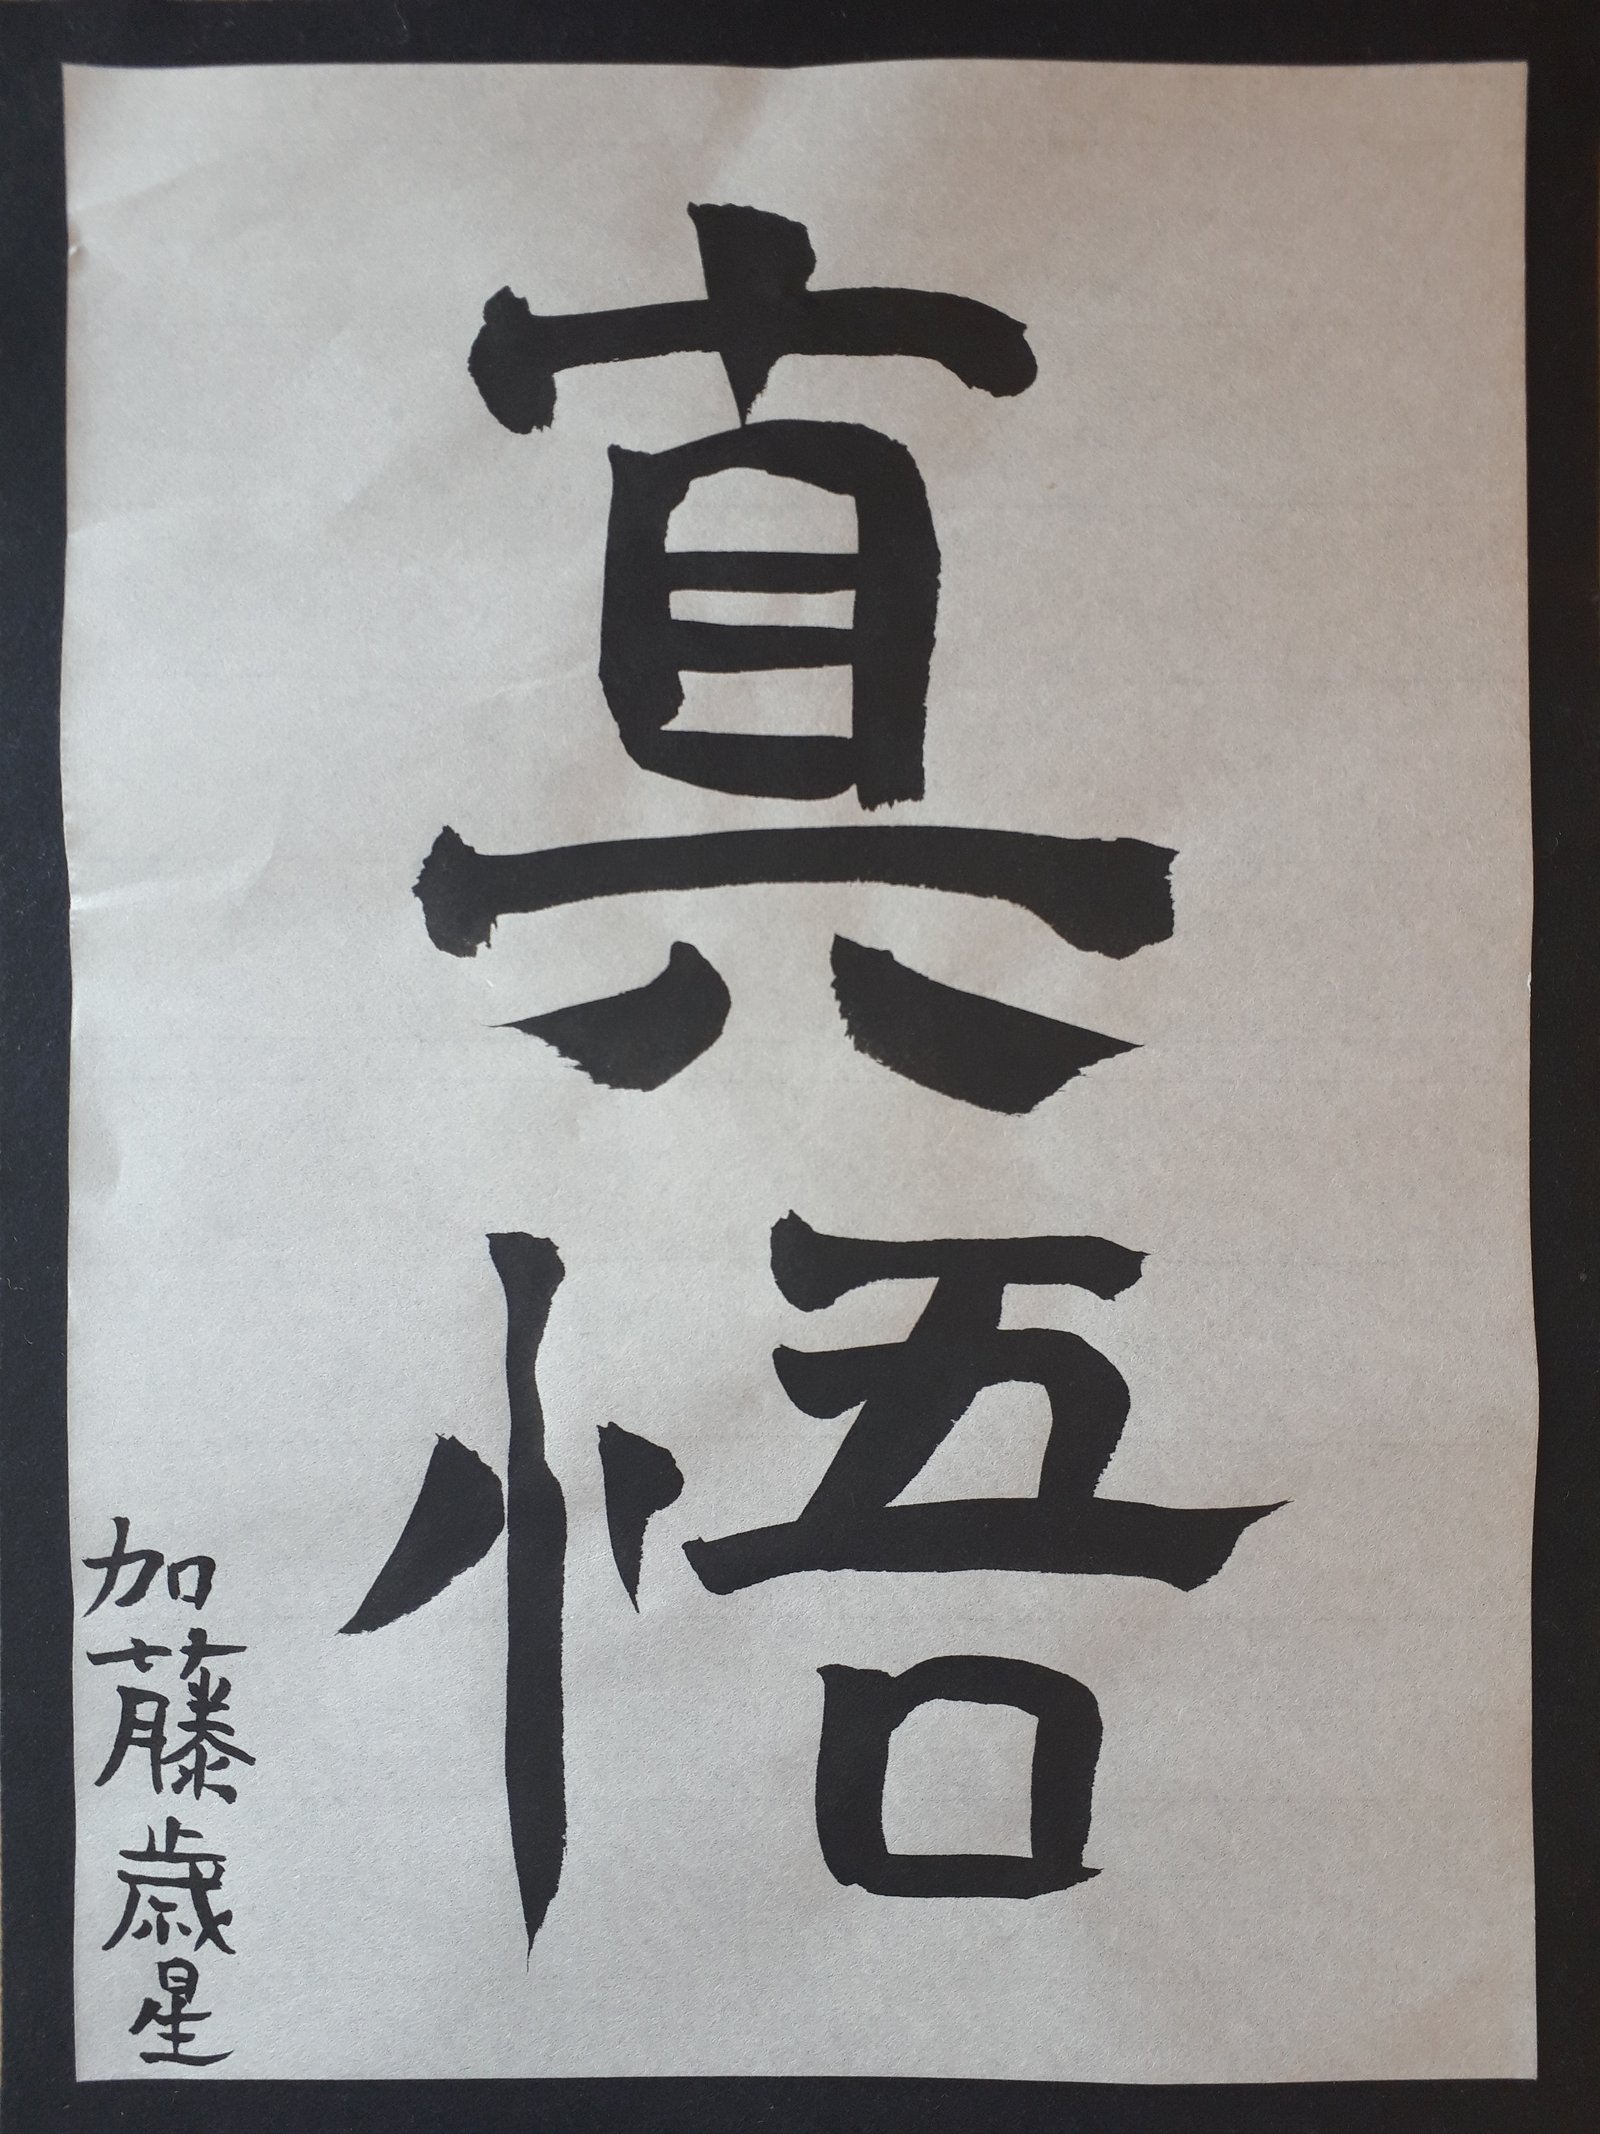 真悟
加藤歳星